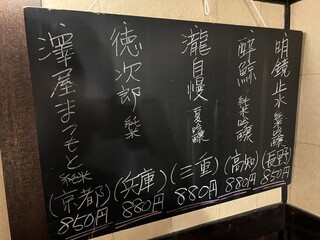 明鏡止水 純米吟醸 (長野) 850円
酔鯨 純米吟醸 (高知) 880円
瀧自慢 夏吟醸 (三重) 880円
徳次郎 純米 (兵庫) 880円
澤屋まつもと 純米 (京都) 850円